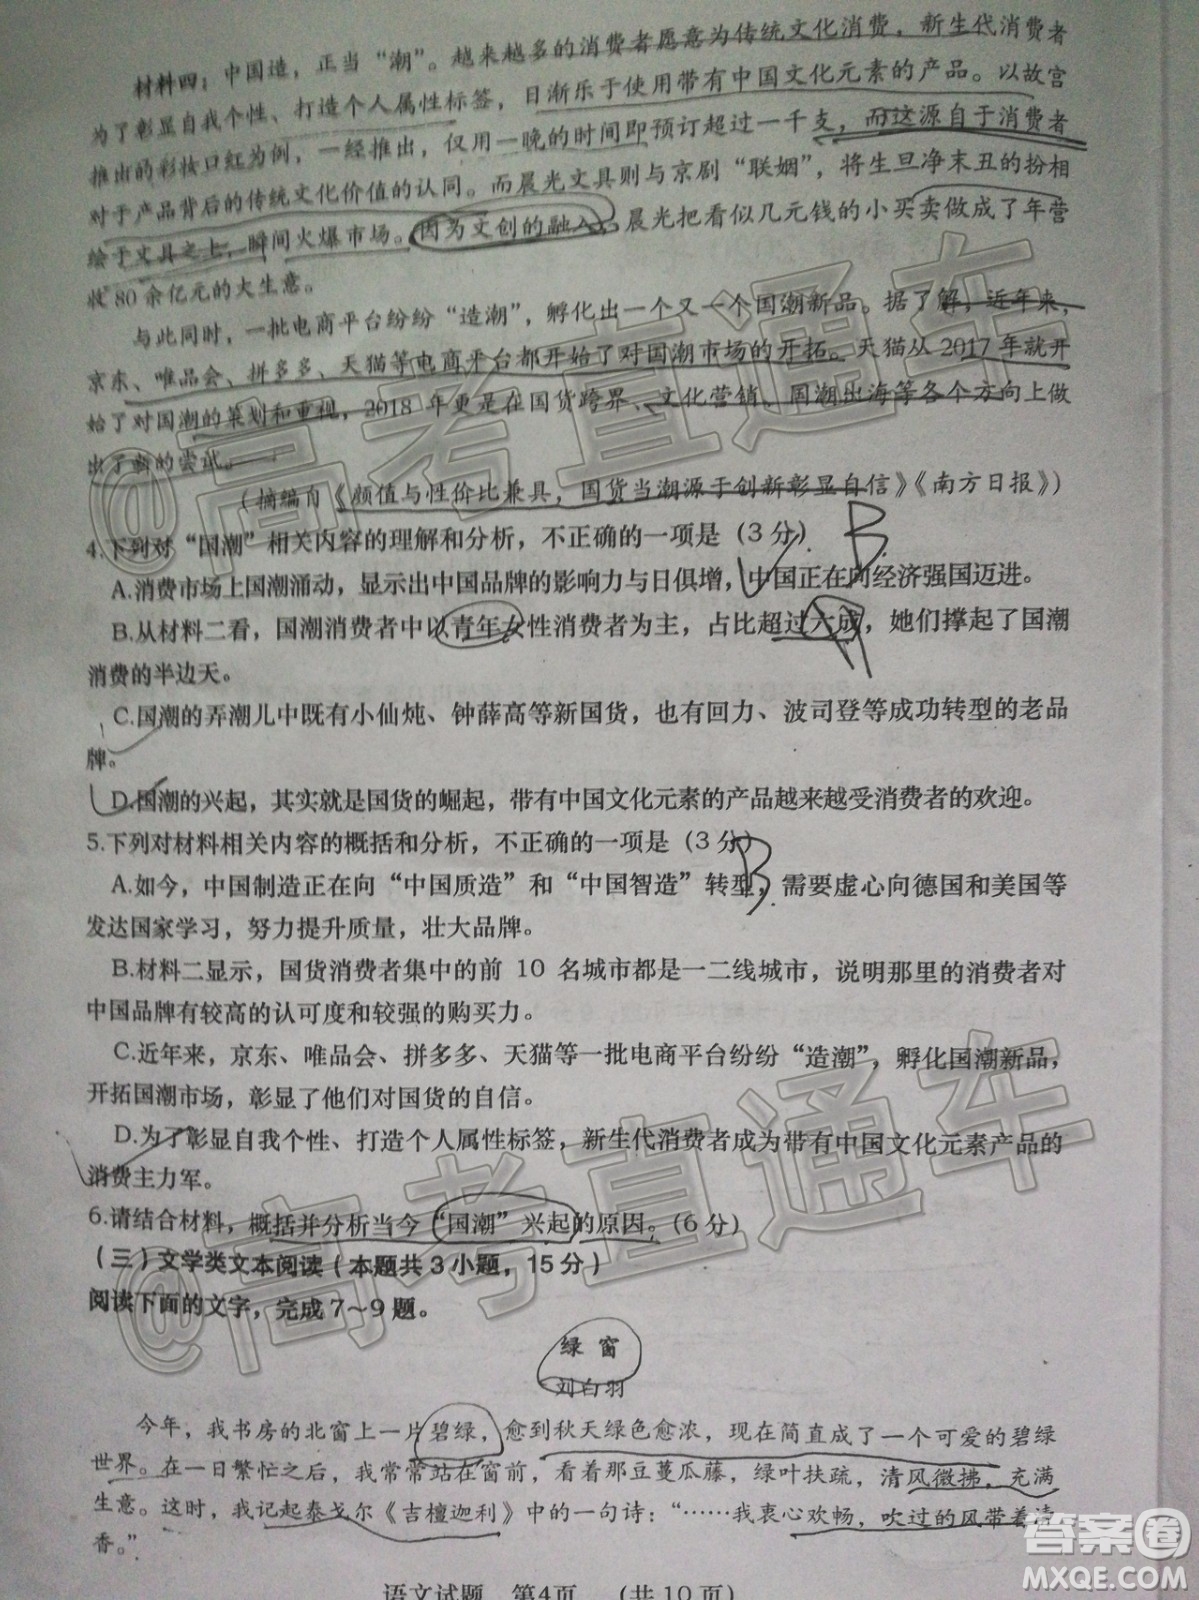 材料四：中国造，正当“潮”。越来越多的消费者愿意为传统文化消费，新生代消费者
为了彰显自我个性、打造个人属性标签，日渐乐于使用带有中国文化元素的产品。以故宫
推出的彩妆口红为例，一经推出，仅用一晚的时间即预订超过一千支，而这源自于消费者
对于产品背后的传统文化价值的认同。而晨光文具则与京剧“联姻”，将生旦净末丑的扮相
绘于文具之上，瞬间火爆市场。因为文创的融入，晨光把看似几元钱的小买卖做成了年营
收80余亿元的大生意。
与此同时，一批电商平台纷纷“造潮”，孵化出一个又一个国潮新品。据了解，近年来，
京东、唯品会、拼多多、天猫等电商平台都开始了对国潮市场的开拓。天猫从2017年就开
始了对国潮的策划和重视，2018年更是在国货跨界、文化营销、国潮出海等各个方向上做
出了新的尝试。
（摘编自《颜值与性价比兼具，国货当潮源于创新彰显自信》《南方日报》）
4.下列对“国潮”相关内容的理解和分析，不正确的一项是（3分） B
A.消费市场上国潮涌动，显示出中国品牌的影响力与日俱增，中国正在向经济强国迈进。
B.从材料二看，国潮消费者中以青年女性消费者为主，占比超过六成，她们撑起了国潮
消费的半边天。
C.国潮的弄潮儿中既有小仙炖、钟薛高等新国货，也有回力、波司登等成功转型的老品
牌。
D.国潮的兴起，其实就是国货的崛起，带有中国文化元素的产品越来越受消费者的欢迎。
5.下列对材料相关内容的概括和分析，不正确的一项是（3分） B
A.如今，中国制造正在向“中国质造”和“中国智造”转型，需要虚心向德国和美国等
发达国家学习，努力提升质量，壮大品牌。
B.材料二显示，国货消费者集中的前 10 名城市都是一二线城市，说明那里的消费者对
中国品牌有较高的认可度和较强的购买力。
C.近年来，京东、唯品会、拼多多、天猫等一批电商平台纷纷“造潮”，孵化国潮新品，
开拓国潮市场，彰显了他们对国货的自信。
D.为了彰显自我个性、打造个人属性标签，新生代消费者成为带有中国文化元素产品的
消费主力军。
6.请结合材料，概括并分析当今“国潮”兴起的原因。（6分）
（三）文学类文本阅读（本题共3小题，15分）
阅读下面的文字，完成7～9题。
绿 窗
刘白羽
今年，我书房的北窗上一片碧绿，愈到秋天绿色愈浓，现在简直成了一个可爱的碧绿
世界。在一日繁忙之后，我常常站在窗前，看着那豆蔓瓜藤，绿叶扶疏，清风微拂，充满
生意。这时，我记起泰戈尔《吉檀迦利》中的一句诗：“……我衷心欢畅，吹过的风带着清
香。”
语文试题 第4页 （共10页）
@高考直通车
@高考直通车
答案圈
MXQE.COM